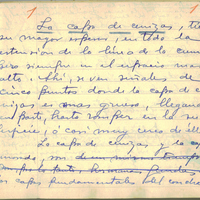 1 1
La capa de cenizas, tie
su mayor espesor, en todo la
extensión de la línea de la cum
pero siempre en el espacio mas
alto. Ahí, se ven señales de
cinco puntos donde la capa de ce
nizas es mas gruesa, llegano
en parte, hasta romper en la su
perficie, ó casi muy cerca de ella
La capa de cenizas y la ca
son
las capas fundamentales del concha